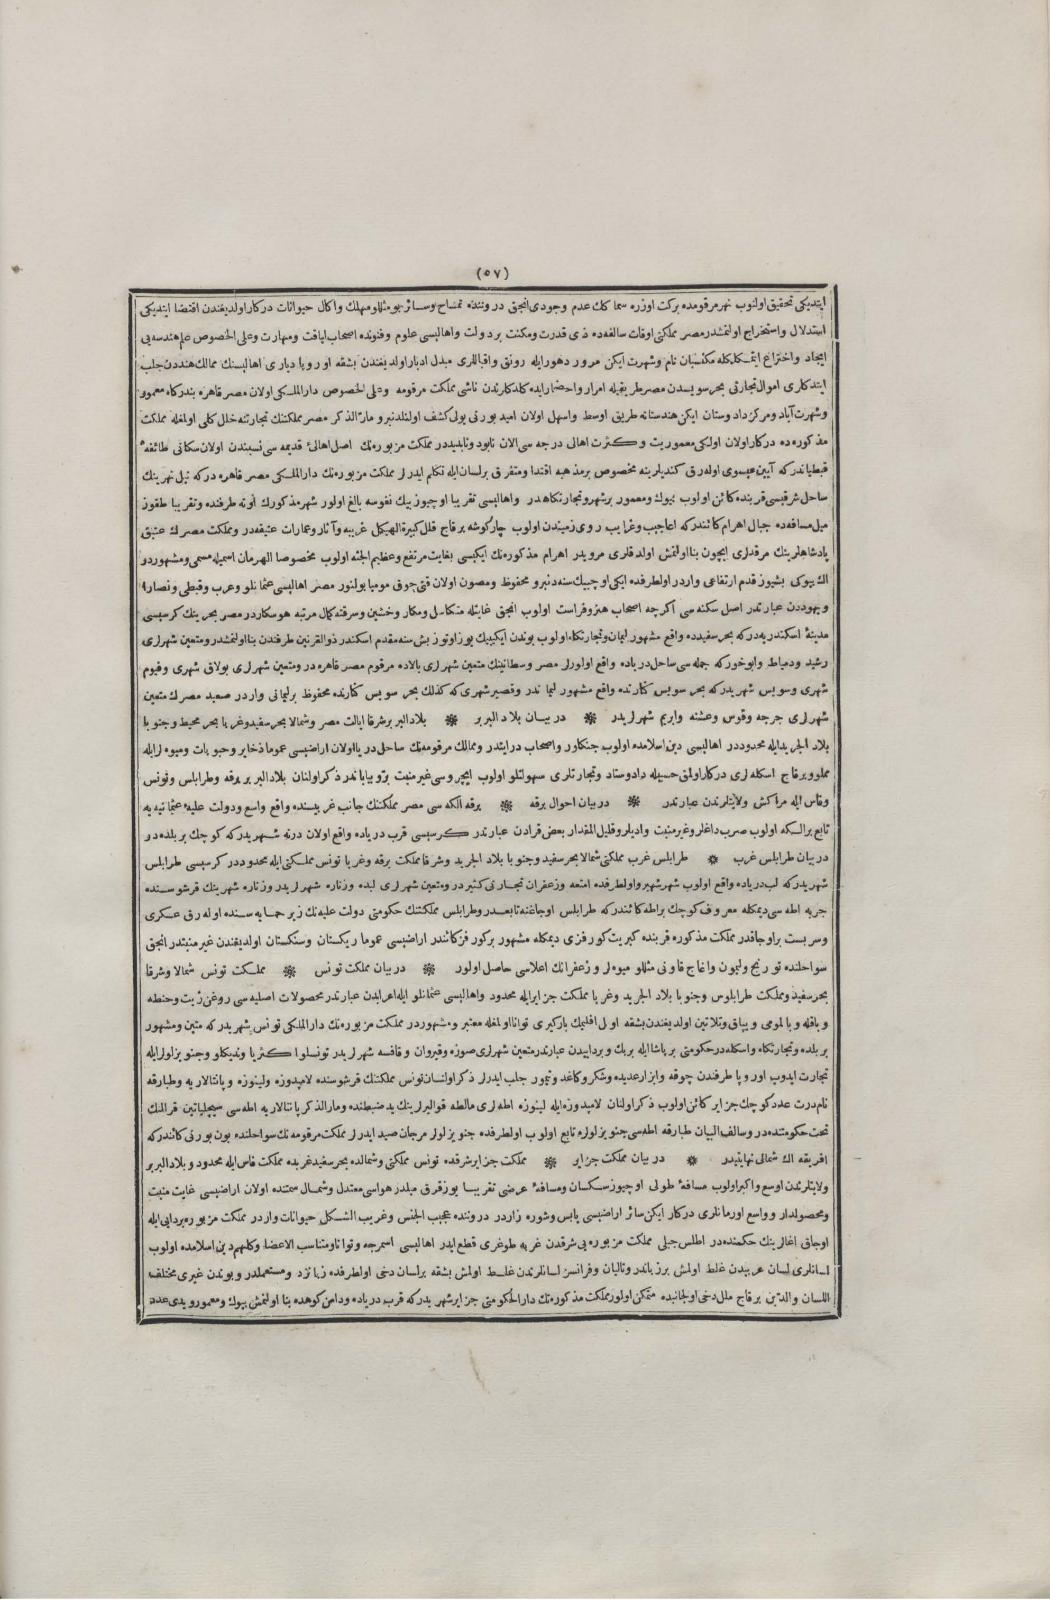 (٥٧)
ایتدیکی تحقیق اولنوب نهر مرقومده برکت اوزره سماکك عدم وجودی انجق دروننده تمساح وسائر بو مثللو مهلك واکال حیوانات درکار اولدیغندن اقتضا ایتدیکی
استدلال واستخراج اولنمشدر مصر مملکتی اوقات سالفه‌ده ذی قدرت ومکنت بر دولت واهالیسی علوم وفنونده اصحاب لیاقت ومهارت وعلی الخصوص علم هندسه‌یی
ایجاد واختراع ایتمکله کسبان نام وشهرت ایکن مرور دهور ایله رونق واقباللری مبدل ادبار اولدیغندن بشقه اوروپا دیاری اهالیسنك ممالك هنددن جلب
ایتدکلری اموال تجارتی بحر سویسدن مصر طریقیله امرار واحضار ایده‌کلدکلرندن ناشی مملکت مرقومه وعلی الخصوص دار الملکی اولان مصر قاهره بندرکاه معمور
وشهرت آباد ومرکز داد وستان ایکن هندستانه طریق اوسط واسهل اولان امید بورنی یولی کشف اولنلدنبرو مار الذکر مصر مملکتنك تجارتنه خلل کلی اولمغله مملکت
مذکوره‌ده درکار اولان اولکی معموریت وکثرت اهالی درجه‌سی الان نابود وناپدیددر مملکت مزبوره‌نك اصل اهالئ قدیمه‌سی نسبندن اولان سکانی طائفه‌ٔ
قبطیاندرکه آیین عیسوی اوله‌رق کندیلرینه مخصوص بر مذهبه اقتدا ومتفرق بر لسان ایله تکلم ایدرلر مملکت مزبوره‌نك دار الملکی مصر قاهره درکه نیل نهرینك
ساحل شرقیسی قربنده کائن اولوب بیوك ومعمور بر شهر وتجارتکاهدر واهالیسی تقریبا اوچیوز بیك نفوسه بالغ اولور شهر مذکورك اوته طرفنده وتقریبا طقوز
میل مسافه‌ده جبال اهرام کائندرکه اعاجیب وغرایب روی زمیندن اولوب چارکوشه برقاج قلل کبیرة الهیکل غریبه وآثار وعمارات عتیقه‌در ومملکت مصرك عتیق
پادشاهلرینك مرقدلری ایچون بنا اولنمش اولدقلری مرویدر اهرام مذکوره‌نك ایکیسی بغایت مرتفع وعظیم الجثه اولوب مخصوصا الهرمان اسمیله مسمی ومشهوردر
اك بیوکی بشیوز قدم ارتفاعی واردر اولطرفده ایکی اوچ بیك سنه‌دنبرو محفوظ ومصون اولان قتی چوق مومیا بولنور مصر اهالیسی عثمانلو وعرب وقبطی ونصارا
ویهوددن عبارتدر اصل سکنه‌سی اکرچه اصحاب هنر وفراست اولوب انجق غایتله متکاسل ومکار وخشین وسرقته کمال مرتبه هوسکاردر مصر بحرینك کرسیسی
مدینهٔ اسکندریه‌درکه بحر سفیدده واقع مشهور لیمان وتجارتکاه اولوب بوندن ایکیبیك یوز اوتوز بش سنه مقدم اسکندر ذو القرنین طرفندن بنا اولنمشدر ومتعین شهرلری
رشید ودمیاط وابوخورکه جمله‌سی ساحل دریاده واقع اولورلر مصر وسطانینك متعین شهرلری بالاده مرقوم مصر قاهره در ومتعین شهرلری بولاق شهری وفیوم
شهری وسویس شهریدرکه بحر سویس کنارنده واقع مشهور لیماندر وقصیر شهری که کذلك بحر سویس کنارنده محفوظ بر لیمانی واردر صعید مصرك متعین
شهرلری جرجه وقوس وعشنه وابریم شهرلریدر ❋ در بیان بلاد البربر ❋ بلاد البربر شرقا ایالت مصر وشمالا بحر سفید وغربا بحر محیط وجنوبا
بلاد الجرید ایله محدوددر اهالیسی دین اسلامده اولوب جنکاور واصحاب درایتدر وممالك مرقومه‌نك ساحل دریا اولان اراضیسی عموما ذخایر وحبوبات ومیوه‌لر ایله
مملو وبرقاج اسکله‌لری درکار اولمق حسبیله داد وستاد وتجارتلری سهولتلو اولوب ایچروسی غیر منبت بر بیاباندر ذکر اولنان بلاد البربر برقه وطرابلس وتونس
وفاس ایله مراکش ولایتلرندن عبارتدر ❋ در بیان احوال برقه ❋ برقه الکه‌سی مصر مملکتنك جانب غربیسنده واقع واسع ودولت علیهٔ عثمانیه‌یه
تابع بر الکه اولوب صرب داغلر وغیر منبت وادیلر وقلیل المقدار بعض قرادن عبارتدر کرسیسی قرب دریاده واقع اولان درنه شهریدرکه کوچك بر بلده‌در
در بیان طرابلس غرب ❋ طرابلس غرب مملکتی شمالا بحر سفید وجنوبا بلاد الجرید وشرقا مملکت برقه وغربا تونس مملکتی ایله محدوددر کرسیسی طرابلس
شهریدرکه لب دریاده واقع اولوب شهر شهیر واولطرفده امتعه وزعفران تجارتی کثیردر ومتعین شهرلری لبده وزناره شهرلریدر وزناره شهرینك قرشوسنده
جربه اطه‌سی دیمکله معروف کوچك بر اطه کائندرکه طرابلس اوجاغنه تابعدر وطرابلس مملکتنك حکومتی دولت علیه‌نك زیر حمایه‌سنده اوله‌رق عسکری
وسربست بر اوجاقدر مملکت مذکوره قربنده کبریت کورفزی دیمکله مشهور بر کورفز کائندر اراضیسی عموما ریکستان وسنکستان اولدیغندن غیر منبتدر انجق
سواحلنده تورنج ولیمون واغاج قاونی مثللو میوه‌لر وزعفرانك اعلاسی حاصل اولور ❋ در بیان مملکت تونس ❋ مملکت تونس شمالا وشرقا
بحر سفید ومملکت طرابلوس وجنوبا بلاد الجرید وغربا مملکت جزایر ایله محدود واهالیسی عثمانلو ایله اعرابدن عبارتدر محصولات اصلیه‌سی روغن زیت وحنطه
وباقله وبالمومی ویپاق وتلاتین اولدیغندن بشقه اول اقلیمك بارکیری توانا اولمغله معتبر ومشهوردر مملکت مزبوره‌نك دار الملکی تونس شهریدرکه متین ومشهور
بر بلده وتجارتکاه واسکله‌در حکومتی بر پاشا ایله بر بك وبر داییدن عبارتدر متعین شهرلری صوزه وقیروان وقافسه شهرلریدر تونسلو اکثریا وندیکلو وجنویزلولر ایله
تجارت ایدوب اوروپا طرفندن چوقه وابزار عدیده وشکر وکاغد وتیمور جلب ایدرلر ذکر اولنان تونس مملکتنك قرشوسنده لامپدوزه ولینوزه وپانتالاریه وطبارقه
نام درت عدد کوچك جزایر کائن اولوب ذکر اولنان لامپدوزه ایله لینوزه اطه‌لری مالطه قوالیرلرینك ید ضبطنده ومار الذکر پانتالاریه اطه‌سی سیچلیاتین قرالنك
تحت حکومتنده‌در وسالف البیان طبارقه اطه‌سی جنویزلولره تابع اولوب اولطرفده جنویزلولر مرجان صید ایدرلر مملکت مرقومه‌نك سواحلنده بون بورنی کائندرکه
افریقه‌نك شمالی نهایتیدر ❋ در بیان مملکت جزایر ❋ مملکت جزایر شرقده تونس مملکتی وشمالده بحر سفید غربده مملکت فاس ایله محدود وبلاد البربر
ولایتلرندن اوسع واکبر اولوب مسافهٔ طولی اوچیوز سکسان ومسافهٔ عرضی تقریبا یوز قرق میلدر هواسی معتدل وشمال سمتنده اولان اراضیسی غایت منبت
ومحصولدار وواسع اورمانلری درکار ایکن سائر اراضیسی یابس وشوره زاردر دروننده عجیب الجنس وغریب الشکل حیوانات واردر مملکت مزبوره بر دایی ایله
اوجاق اغالرینك حکمنده‌در اطلس جبلی مملکت مزبوره‌یی شرقدن غربه طوغری قطع ایدر اهالیسی اسمرجه وتوانا ومتناسب الاعضا وکلهم دین اسلامده اولوب
لسانلری لسان عربیدن غلط اولمش بر زباندر وتالیان وفرانسز لسانلرندن غلط اولمش بشقه بر لسان دخی اولطرفده زبانزد ومستعملدر وبوندن غیری مختلف
اللسان والدین برقاج ملل دخی اولجانبده متمکن اولور مملکت مذکوره‌نك دار الحکومتی جزایر شهریدرکه قرب دریاده ودامن کوهده بنا اولنمش بیوك ومعمور ویدی عدد